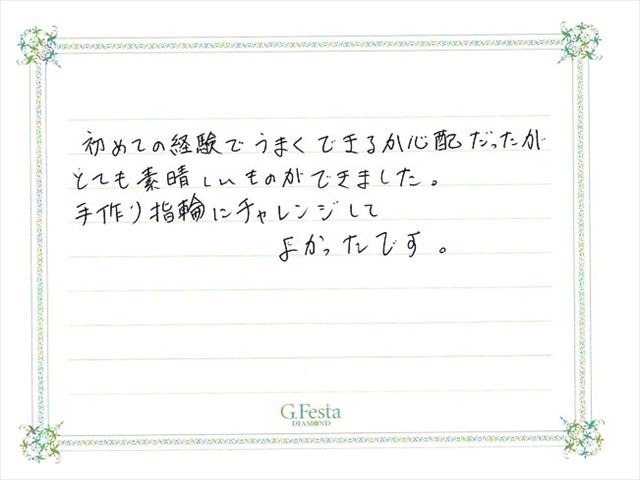 初めての経験でうまくできるか心配だったが
とても素晴しいものができました。
手作り指輪にチャレンジして
よかったです。
G.Festa
DIAMOND